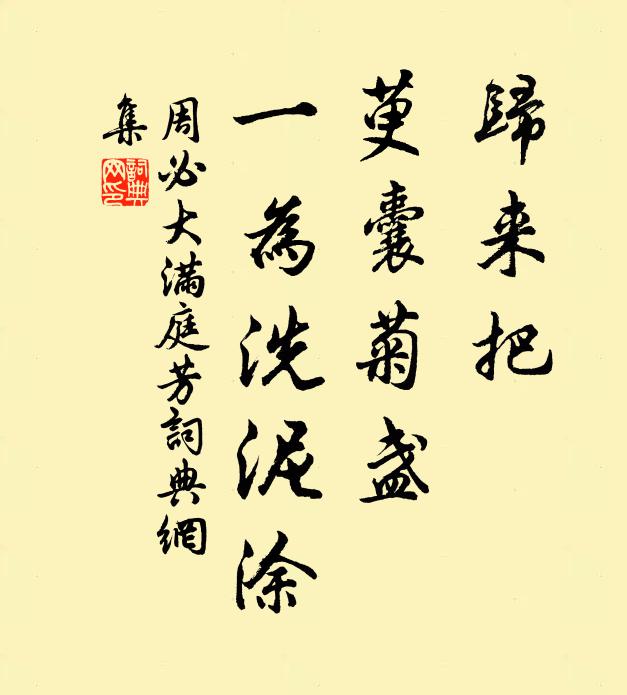 歸来把
萸囊菊盏
一為洗泥涂
周必大滿庭芳詞典網
集
詞典
网印